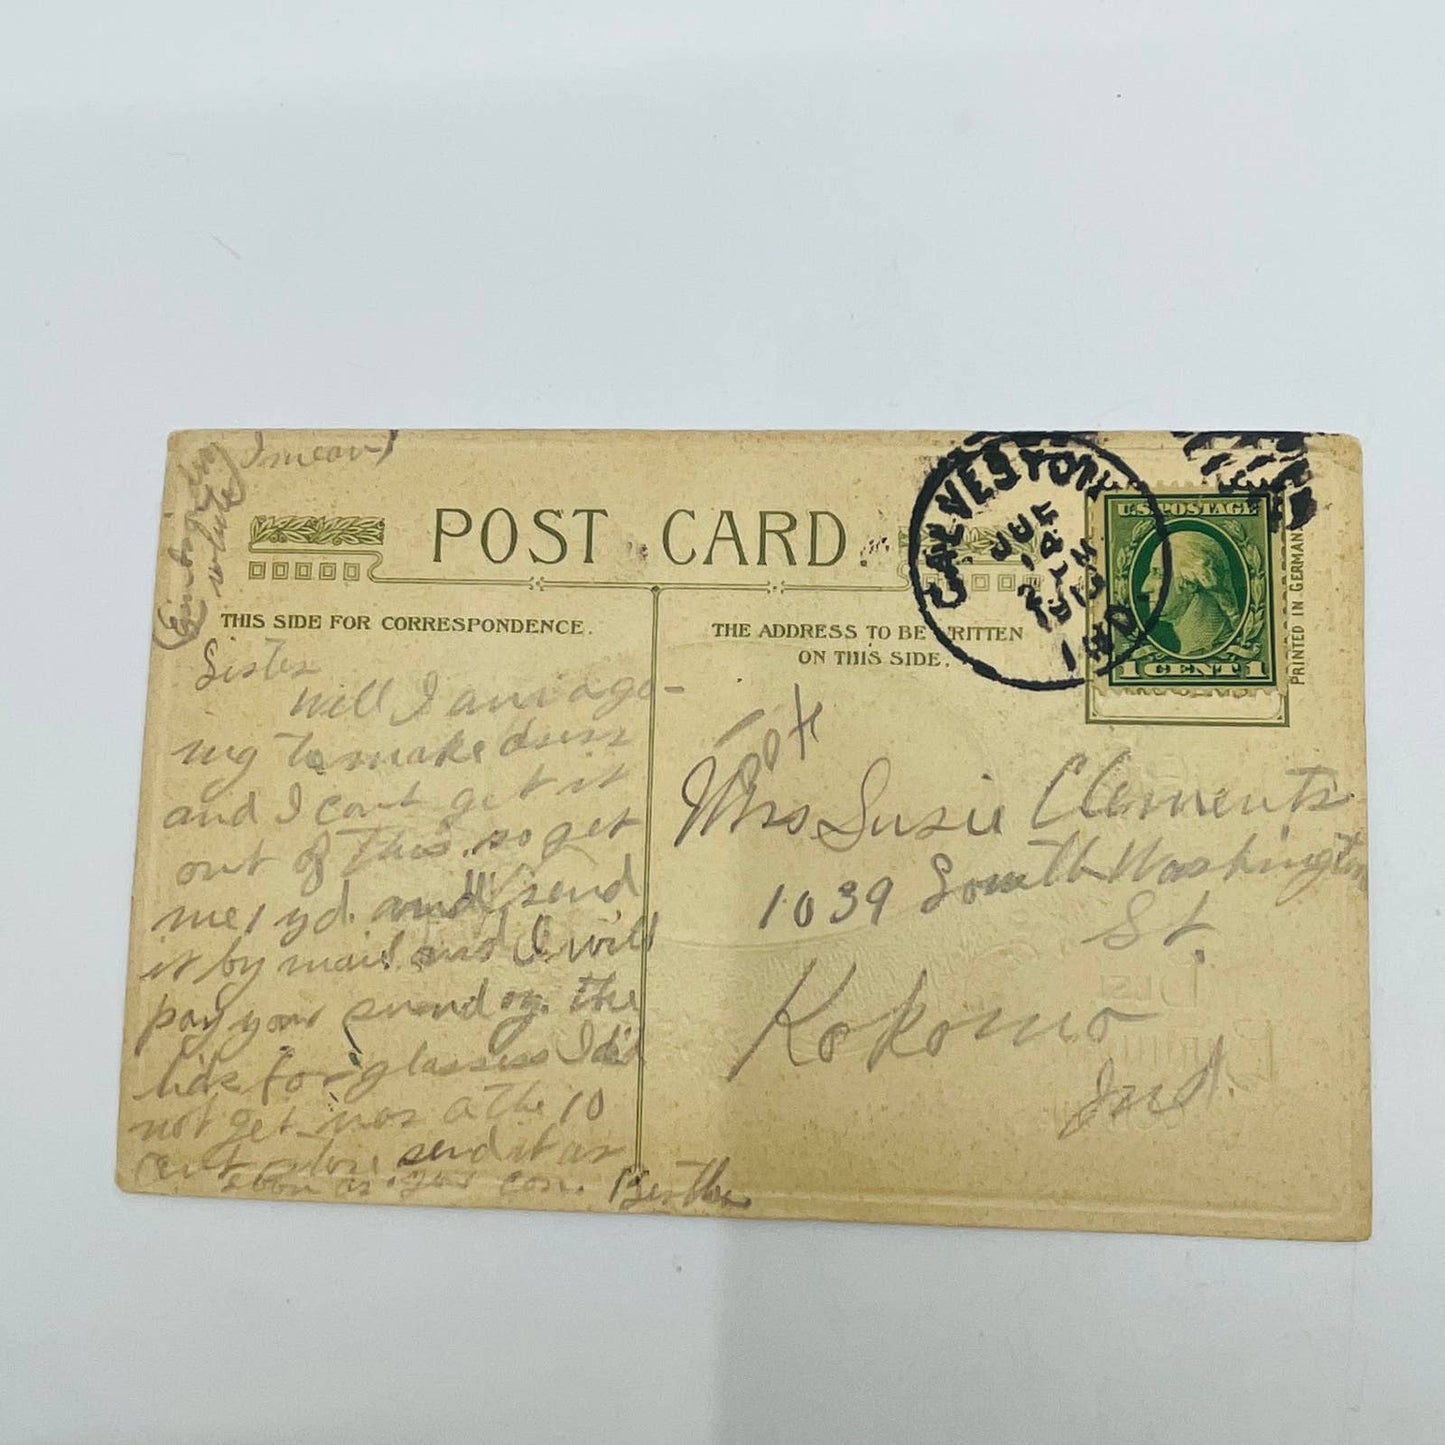 I mean)
(Eimbrodrey
white
POST CARD.
THIS SIDE FOR CORRESPONDENCE.
Sister
Will I am age-
ing to make dress
and I cant get it
out of this. so get
me 1 yd. and send
it by mail and I will
pay you the
for glasses I did
not get was a the 10
cent store send it as
soon as you can. Bertha
THE ADDRESS TO BE WRITTEN
ON THIS SIDE.
Mrs Susie Clements
1039 South Washington
St.
Kokomo
Ind.
GALVESTON
JUL
IND.
U.S. POSTAGE
1 CENT 1
PRINTED IN GERMANY